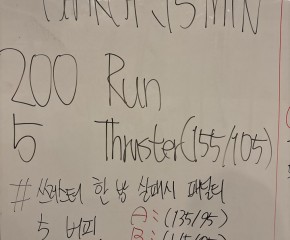 15 MIN
200 Run
5 Thruster(155/105)
# 쓰러스터 한 번 실패시 패널티
5 버피 A: (135/95)
B: (115/